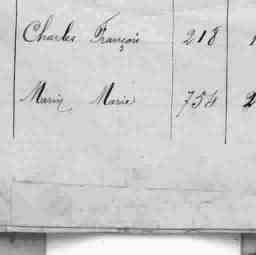 Charles François 218 1
Marin Marie 754 2